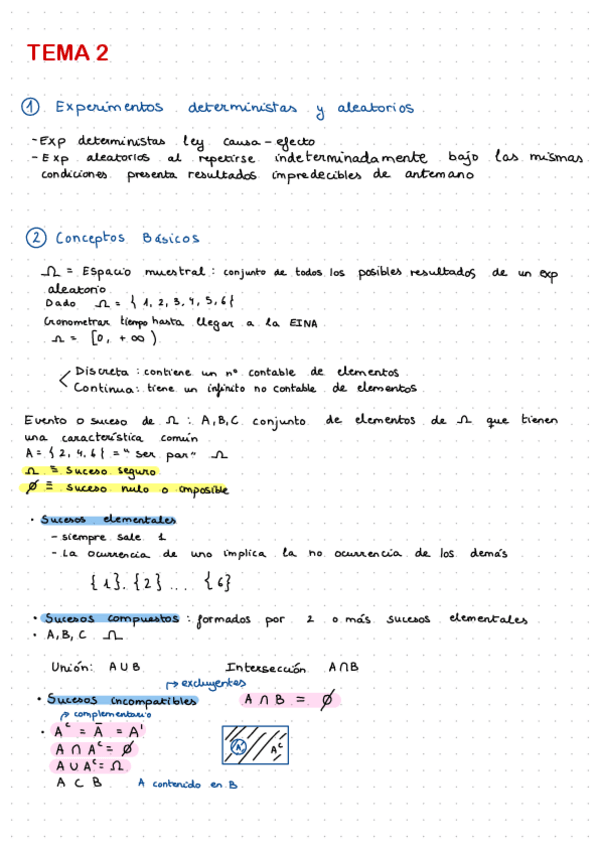 TEMA 2
① Experimentos deterministas y aleatorios
- Exp deterministas ley causa - efecto
- Exp aleatorios al repetirse indeterminadamente bajo las mismas
condiciones presenta resultados impredecibles de antemano
② Conceptos Básicos
Ω = Espacio muestral : conjunto de todos los posibles resultados de un exp
aleatorio
Dado Ω = { 1, 2, 3, 4, 5, 6 }
Cronometrar tiempo hasta llegar a la EINA
Ω = [0, +∞)
Discreta : contiene un nº contable de elementos
Continua : tiene un infinito no contable de elementos
Evento o suceso de Ω : A, B, C conjunto de elementos de Ω que tienen
una característica común
A = { 2, 4, 6 } = " ser par " Ω
Ω ≡ Suceso seguro
∅ ≡ suceso nulo o imposible
• Sucesos elementales
- siempre sale 1
- La ocurrencia de uno implica la no ocurrencia de los demás
{ 1 }, { 2 } ... { 6 }
• Sucesos compuestos : formados por 2 o más sucesos elementales
• A, B, C Ω
Unión: A ∪ B Intersección A ∩ B
→ excluyentes
• Sucesos incompatibles A ∩ B = ∅
→ complementario
• Aᶜ = Ā = A'
A ∩ Aᶜ = ∅
A Aᶜ
A ∪ Aᶜ = Ω
A ⊂ B A contenido en B